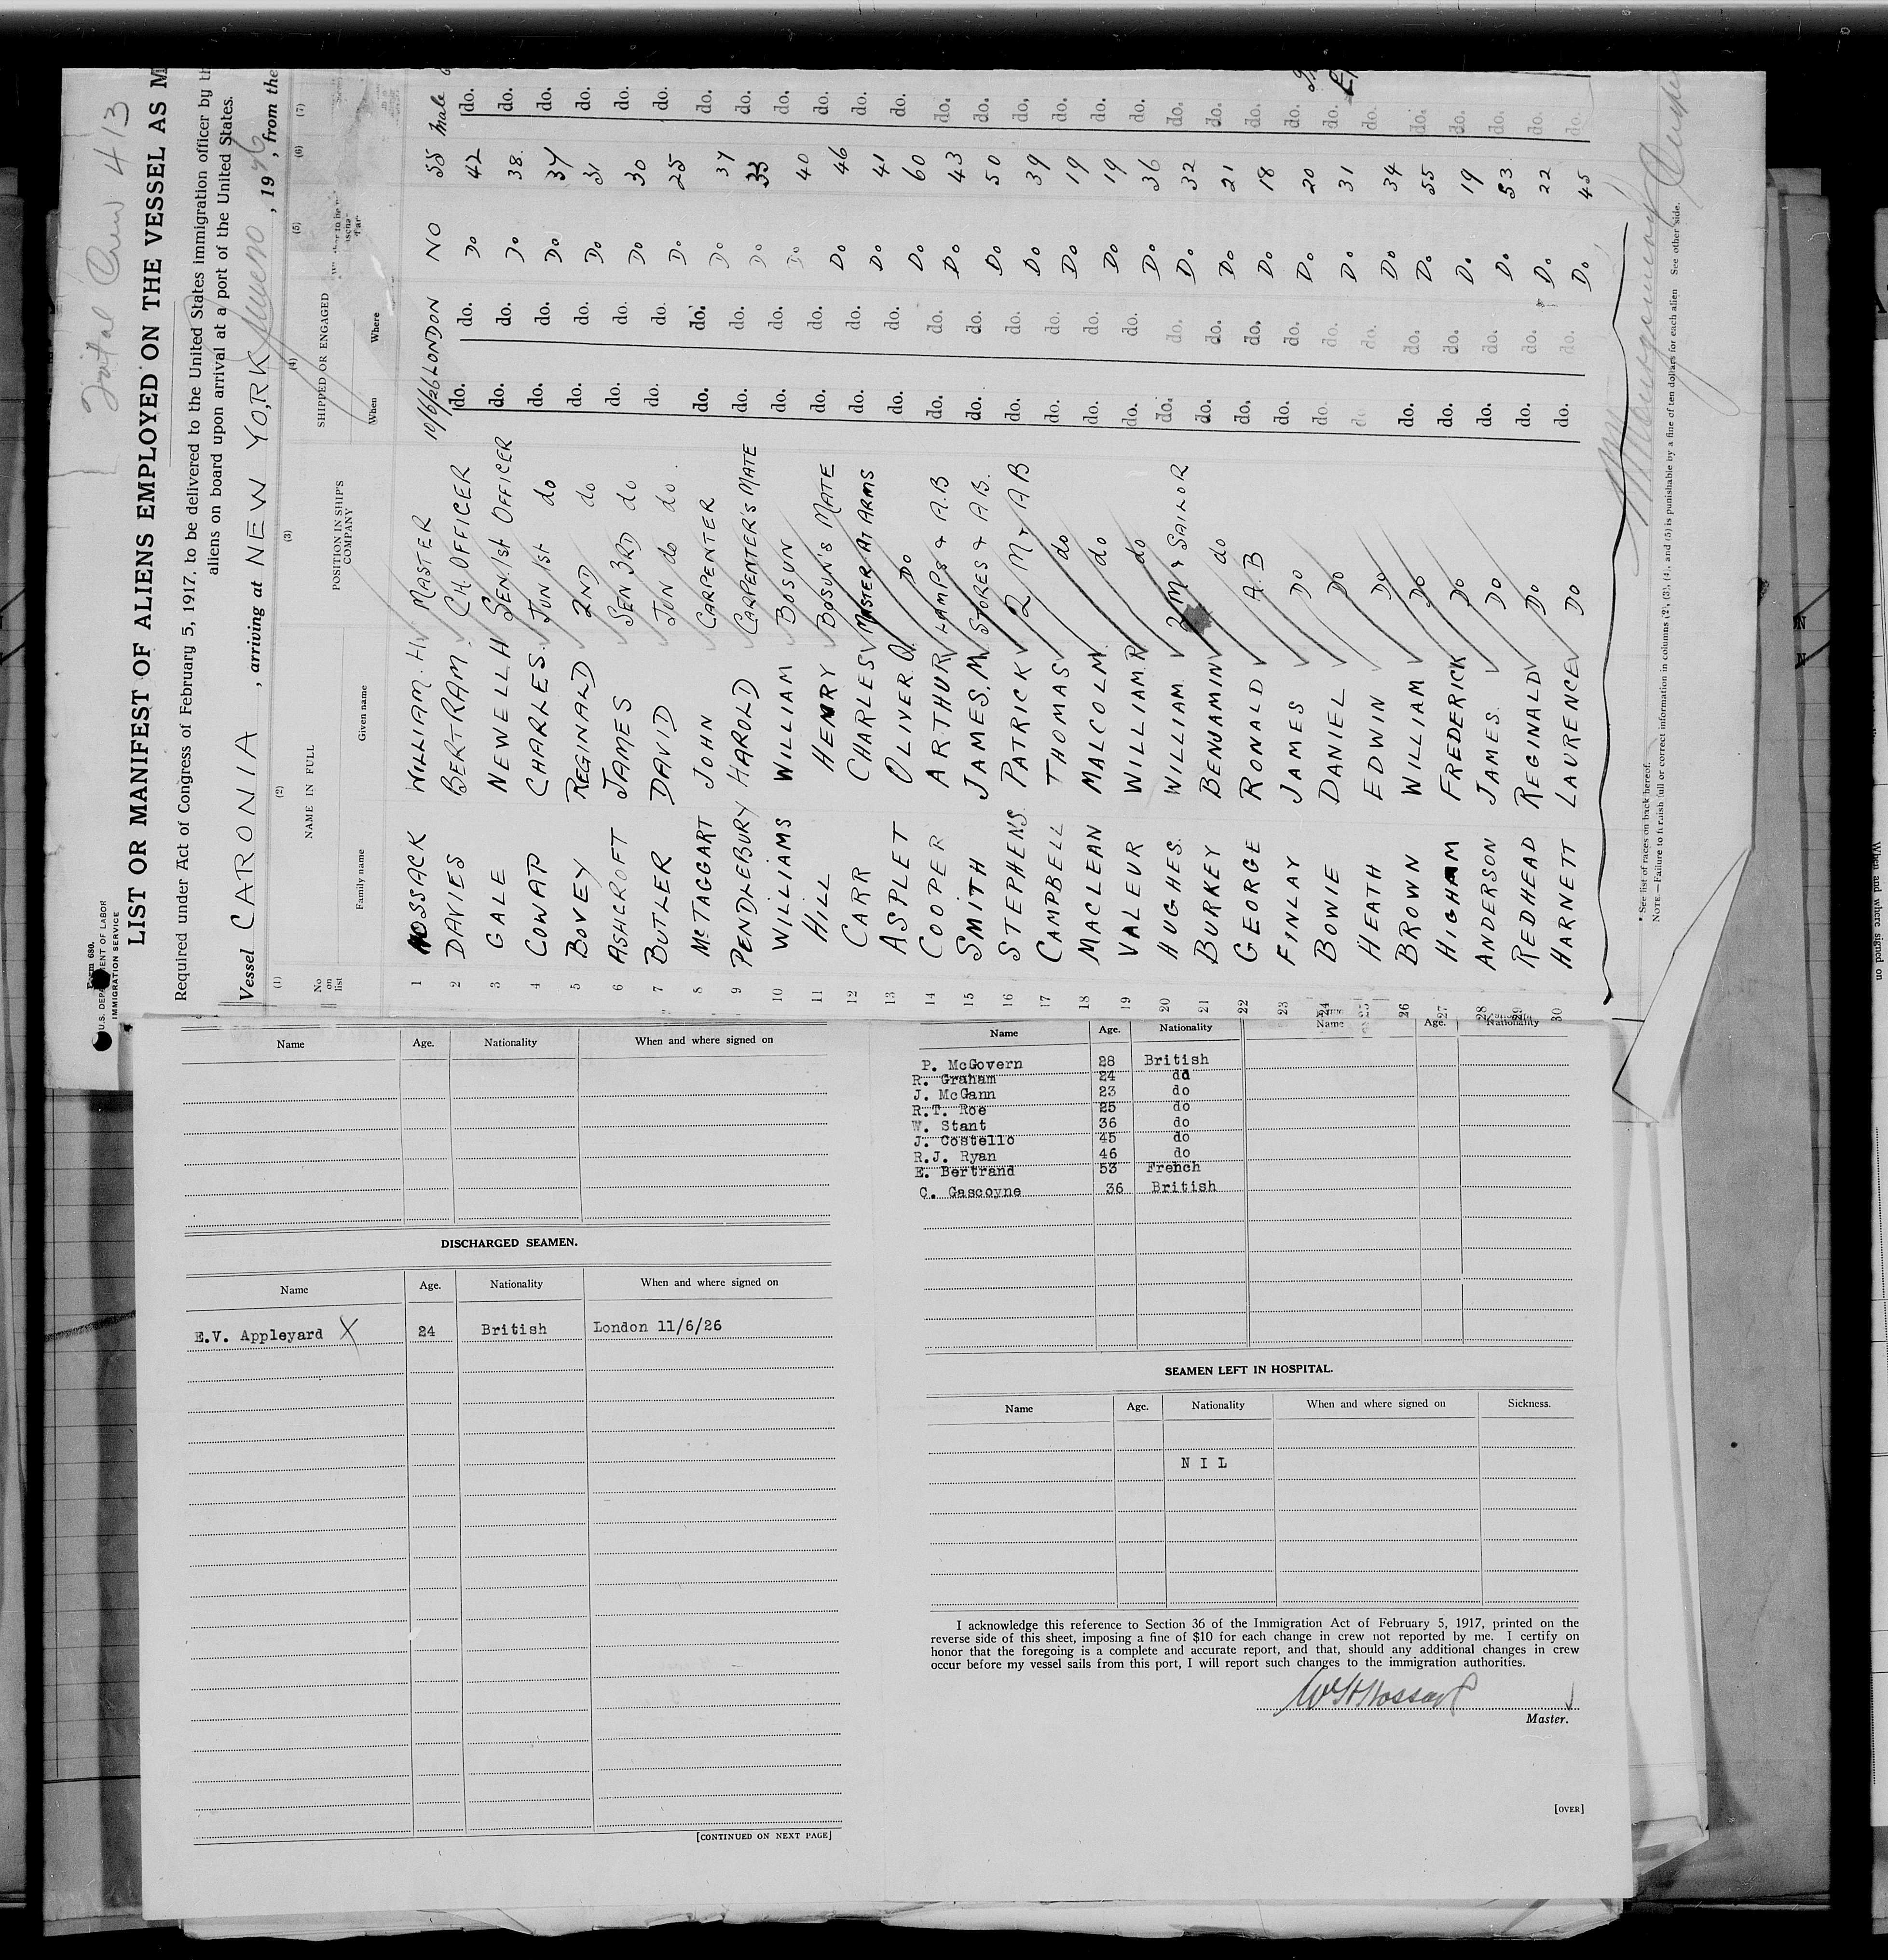 Total Crew 413
Form 680.
U.S. DEPARTMENT OF LABOR
IMMIGRATION SERVICE
LIST OR MANIFEST OF ALIENS EMPLOYED ON THE VESSEL AS M
Required under Act of Congress of February 5, 1917, to be delivered to the United States immigration officer by th
aliens on board upon arrival at a port of the United States.
Vessel CARONIA, arriving at NEW YORK, 1926, from the
(1) (2) (3) (4) (5) (6) (7)
No on list NAME IN FULL POSITION IN SHIP'S COMPANY SHIPPED OR ENGAGED
Family name Given name When Where
1 HOSSACK WILLIAM. H. MASTER 10/6/26 LONDON NO 55 Male
2 DAVIES BERTRAM. CH. OFFICER do. do. Do 42 do.
3 GALE NEWELL H SEN. 1st OFFICER do. do. Do 38. do.
4 COWAP CHARLES. JUN 1st do do. do. Do 34 do.
5 BOVEY REGINARD 2ND do do. do. Do 31 do.
6 ASHCROFT JAMES SEN 3RD do do. do. Do 30 do.
7 BUTLER DAVID JUN do do. do. do. Do 25 do.
8 McTAGGART JOHN CARPENTER do. do. Do 37 do.
9 PENDLEBURY HAROLD CARPENTER'S MATE do. do. Do 33 do.
10 WILLIAMS WILLIAM BOSUN do. do. Do 40 do.
11 HILL HENRY BOSUN'S MATE do. do. Do 46 do.
12 CARR CHARLES MASTER AT ARMS do. do. Do 41 do.
13 ASPLET OLIVER. Q. DO do. do. Do 60 do.
14 COOPER ARTHUR LAMPS & A.B do. do. Do 43 do.
15 SMITH JAMES. M. STORES & A.B. do. do. Do 50 do.
16 STEPHENS PATRICK 2 M & AB do. do. Do 39 do.
17 CAMPBELL THOMAS do do. do. Do 19 do.
18 MACLEAN MALCOLM do do. do. Do 19 do.
19 VALEUR WILLIAM R do do. do. Do 36 do.
20 HUGHES. WILLIAM 2 M & SAILOR do. do. Do 32 do.
21 BURKEY BENJAMIN do do. do. Do 21 do.
22 GEORGE RONALD A.B do. do. Do 18 do.
23 FINLAY JAMES DO do. do. Do 20 do.
24 BOWIE DANIEL DO do. do. Do 31 do.
25 HEATH EDWIN DO do. do. Do 34 do.
26 BROWN WILLIAM DO do. do. Do 55 do.
27 HIGHAM FREDERICK DO do. do. Do 19 do.
28 ANDERSON JAMES. DO do. do. Do 53 do.
29 REDHEAD REGINALD DO do. do. Do 22 do.
30 HARNETT LAURENCE DO do. do. Do 45 do.
* See list of races on back hereof.
NOTE.—Failure to furnish full or correct information in columns (2), (3), (4), and (5) is punishable by a fine of ten dollars for each alien See other side.
Name Age. Nationality When and where signed on
DISCHARGED SEAMEN.
Name Age. Nationality When and where signed on
E.V. Appleyard X 24 British London 11/6/26
[CONTINUED ON NEXT PAGE]
Name Age. Nationality Name Age. Nationality
P. McGovern 28 British
R. Graham 24 dd
J. McGann 23 do
R.T. Roe 25 do
W. Stant 36 do
J. Costello 45 do
R.J. Ryan 46 do
E. Bertrand 53 French
C. Gascoyne 36 British
SEAMEN LEFT IN HOSPITAL.
Name Age. Nationality When and where signed on Sickness.
N I L
I acknowledge this reference to Section 36 of the Immigration Act of February 5, 1917, printed on the
reverse side of this sheet, imposing a fine of $10 for each change in crew not reported by me. I certify on
honor that the foregoing is a complete and accurate report, and that, should any additional changes in crew
occur before my vessel sails from this port, I will report such changes to the immigration authorities.
W H Hossack
Master.
[OVER]
When and where signed on